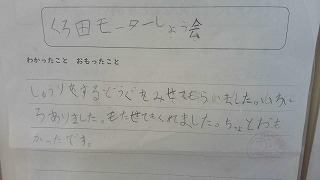 くろ田モーターしょう会
わかったこと　おもったこと
しゅうりをするどうぐをみせてもらいました。いろい
ろありました。もたせてくれました。ちょっとおも
かったです。